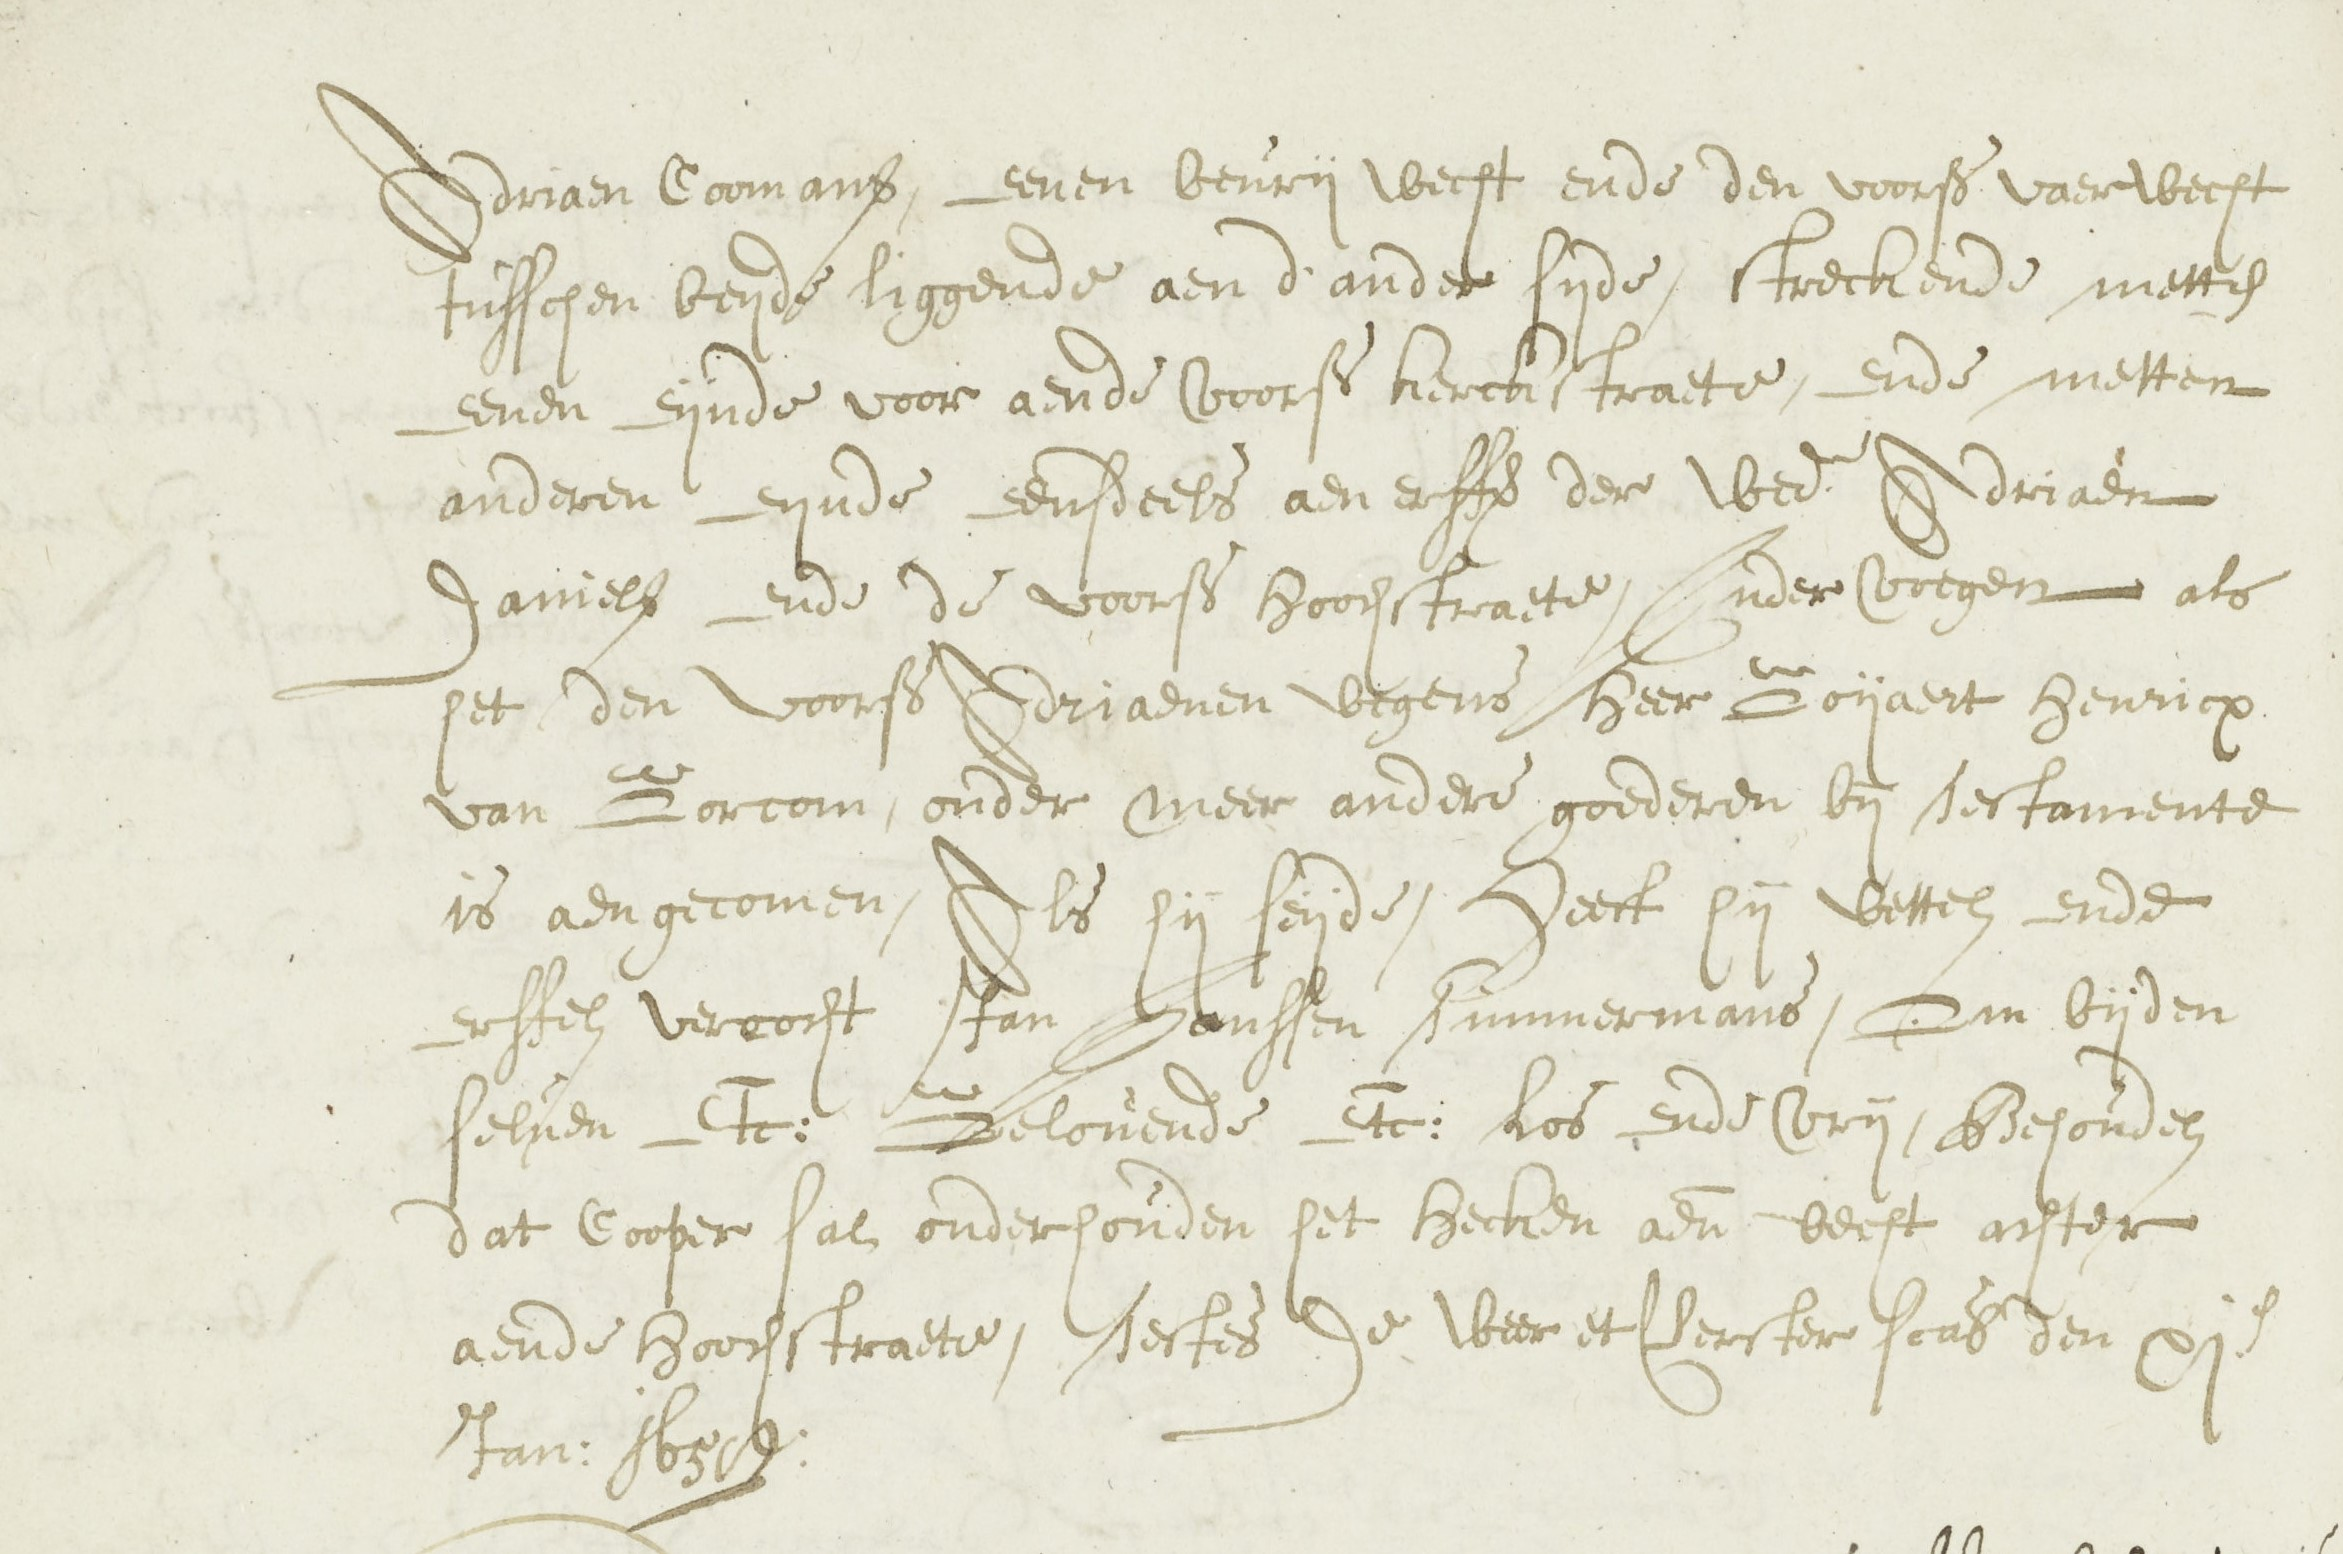 Adriaen Coomans, eenen beurij wech ende den voors vaerwech
tusschen beyde liggende aen d'ander syde, streckende mett
eenen eynde voor aende voors kerckstraete, ende metten
anderen eynde eensdeels aen erffs der Wed. Adriaen
Daniels ende de voors hoochstraete, Inder voegen als
het den voors Adriaenen wegens heer Goyaert Henricx
van Gorcom, onder meer andere goederen bij testamente
is aengecomen, Als hij seyde, Heeft hij wettel ende
erffel vercocht Jan Janssen Timmermans, Om bijden
selven etc: Gelovende etc: Los ende vrij, Behoudel
dat Cooper sal onderhouden het hecken aen wech achter
aende hoochstraete, Testes De Weer et Verster scab den xj
Jan: 165